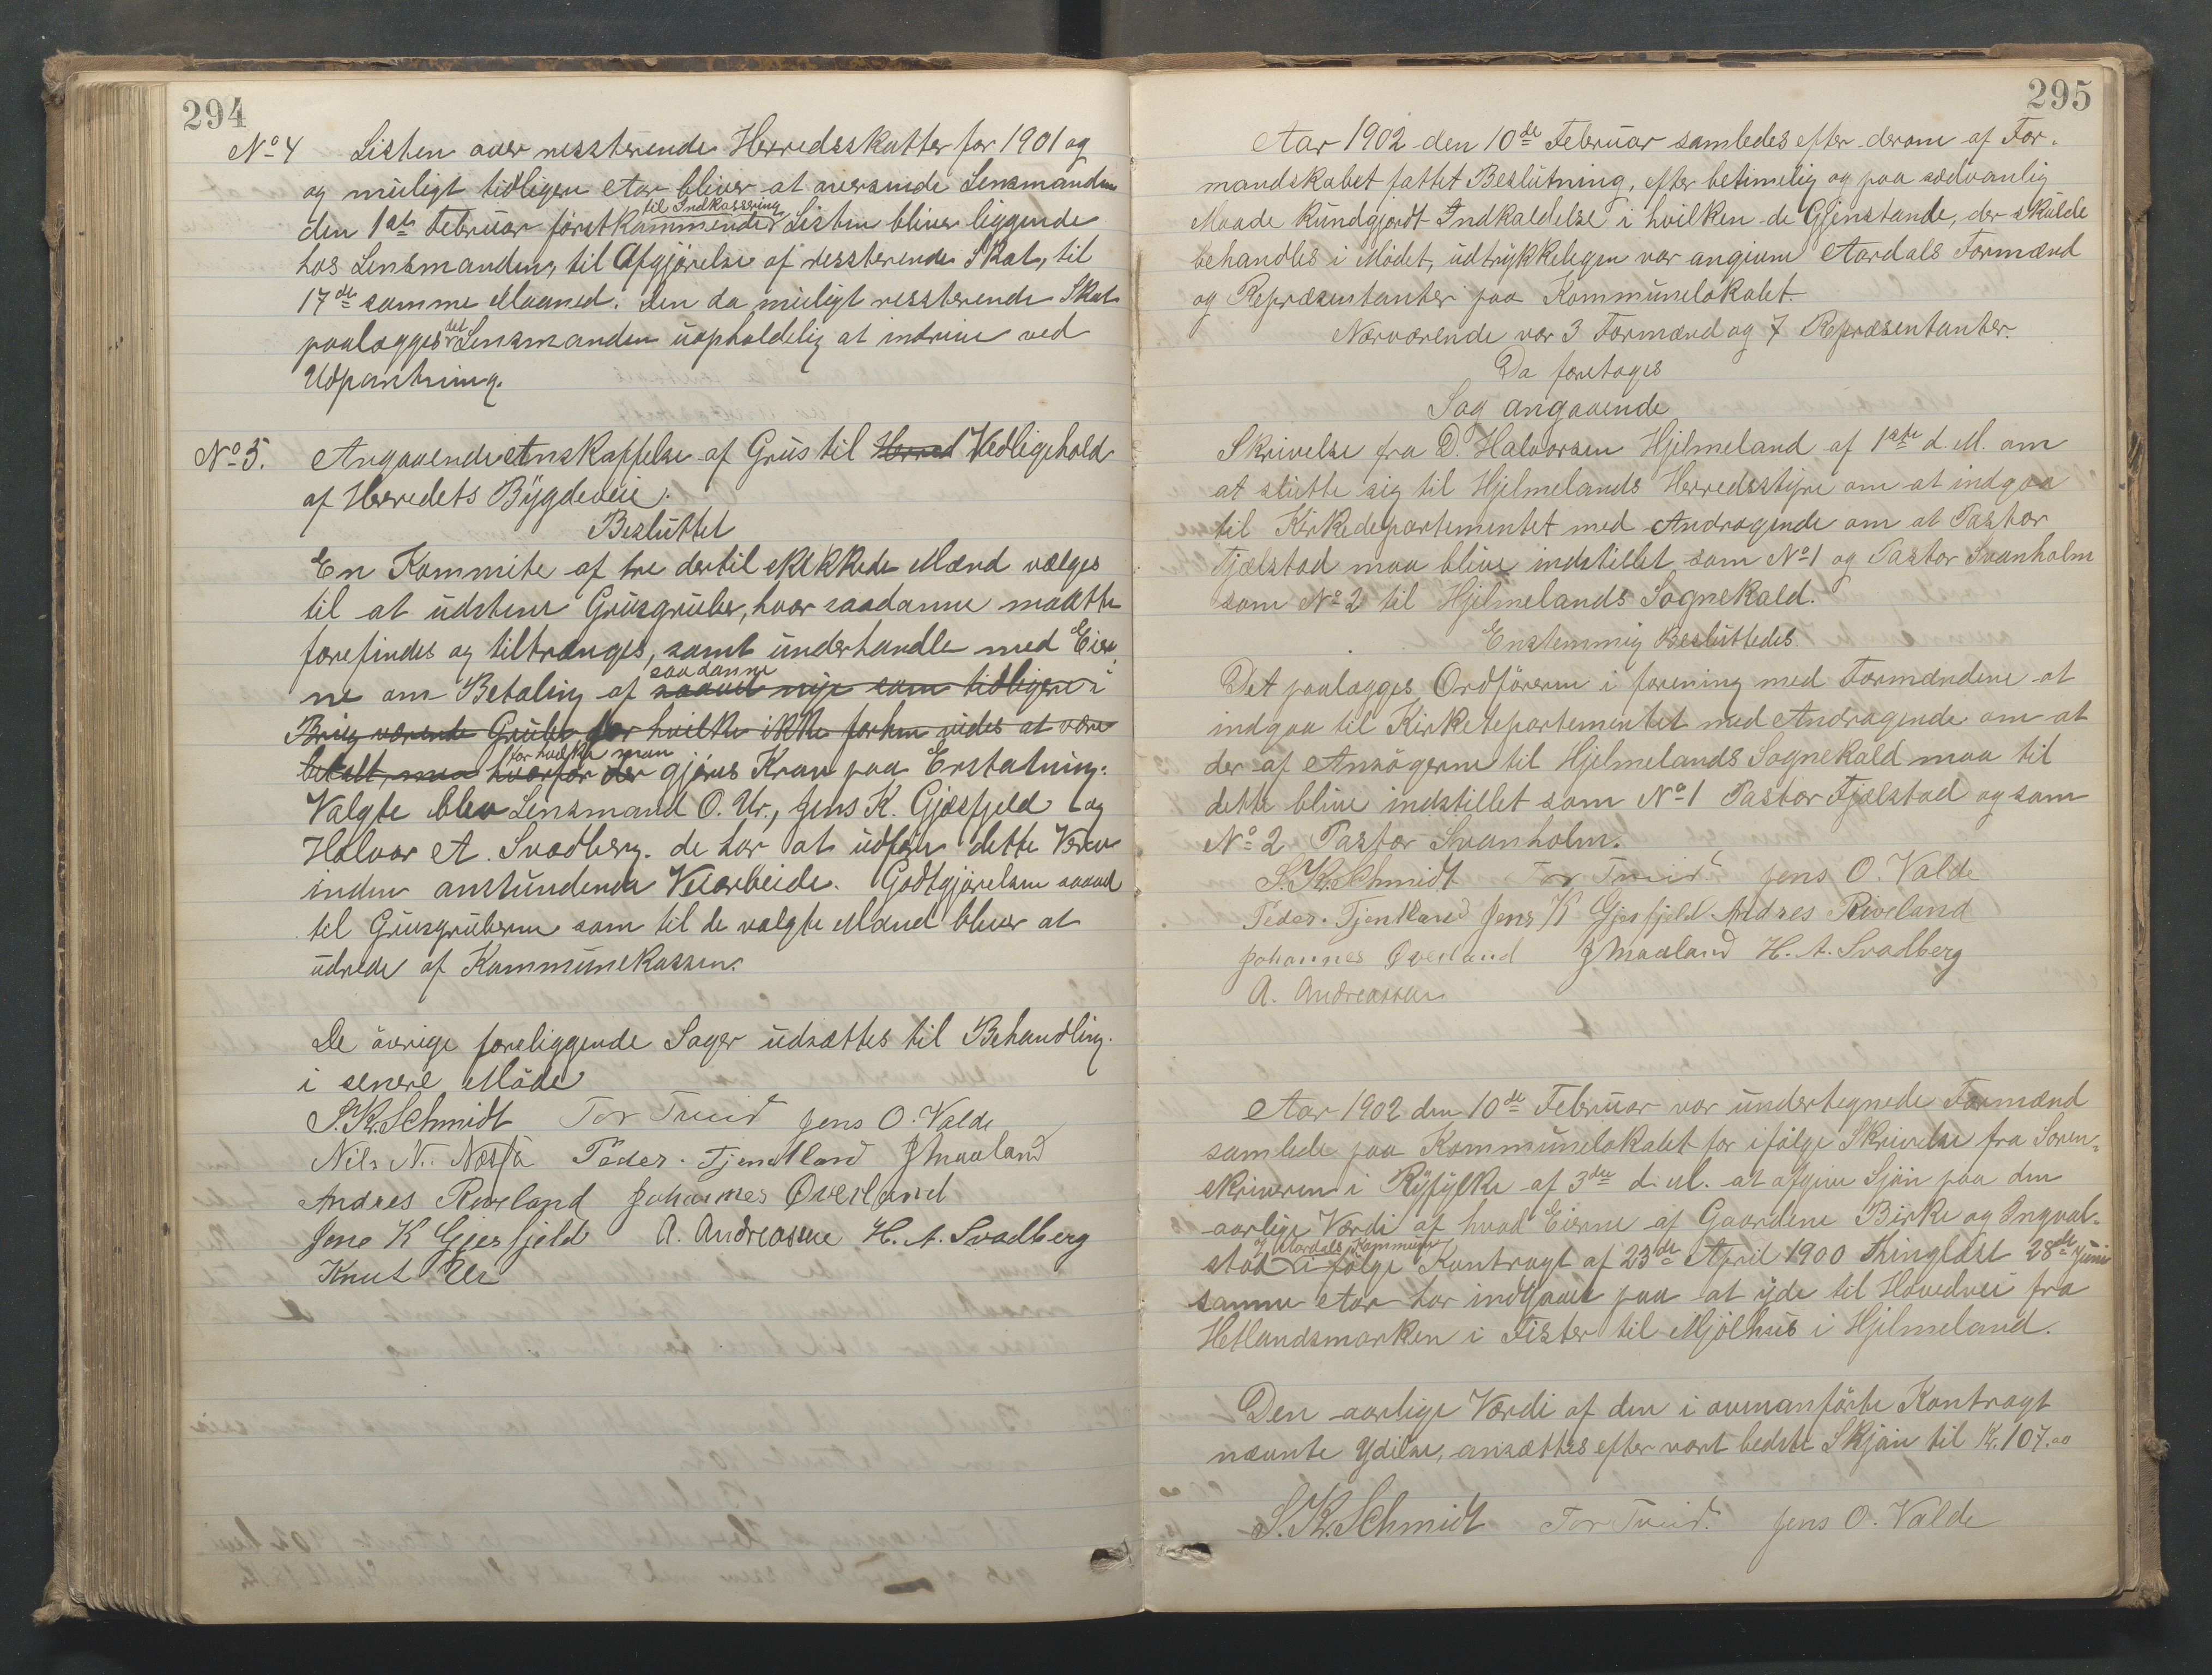 294
No 4 Listen over ressterende Herredsskatter for 1901 og
og muligt tidligere Aar bliver at oversende Lensmanden
til Indkassering
den 1ste Februar förstkommende. Listen bliver liggende
hos Lensmanden, til Afgjörelse af ressterende Skat, til
17de samme Maaned. Den da muligt ressterende Skat
paalægges det Lensmanden uopholdelig at inddrive ved
Udpantning.
No 5. Angaaende Anskaffelse af Grus til Herred Vedligehold
af Herredets Bygdeveie.
Besluttet
En Kommite af tre dertil skikkede Mænd vælges
til at udstene Grusgruber, hvor saadanne maatte
forefindes og tiltrænges, samt underhandle med Eier
saadanne
ne om Betaling af saavel nye som tidligere i
Brug værende Gruber for hvilke ikke forhen vides at være
for hvilke man
betalt, hvorfor der gjöres Krav paa Erstatning.
Valgte blev Lensmand O. Ur, Jens K. Gjösfjeld og
Halvor A. Svadberg. de har at udföre dette Verv
inden anstundende Veiarbeide. Godtgjörelsen saavel
til Grusgruberne som til de valgte Mænd bliver at
udrede af Kommunekassen.
De övrige foreliggende Sager udsættes til Behandling
i senere Möde
S. K. Schmidt Tor Tveid Jens O. Valde
Nils N. Nessa Peder Tjentland J Maaland
Andres Riveland Johannes Överland
Jens K Gjesfjeld A. Andreassen H. A. Svadberg
Knut Ur
295
Aar 1902 den 10de Februar samledes efter derom af For-
mandskabet fattet Beslutning, efter betimelig og paa sædvanlig
Maade kundgjordt Indkaldelse i hvilken de Gjenstande, der skulde
behandles i Mödet, udtrykkeligen var angivne Aardals Formænd
og Repræsentanter paa Kommunelokalet.
Nærværende var 3 Formænd og 7 Repræsentanter.
Da foretages
Sag angaaende
Skrivelse fra D. Halvorsen Hjelmeland af 1ste d. M. om
at slutte sig til Hjelmelands Herredsstyre om at indgaa
til Kirkedepartementet med Andragende om at Pastor
Fjælstad maa blive indstillet som No 1 og Pastor Svanholm
som No 2 til Hjelmelands Sognekald.
Enstemmig Besluttedes.
Det paalægges Ordföreren i forening med Formændene at
indgaa til Kirkedepartementet med Andragende om at
der af Ansögerne til Hjelmelands Sognekald maa til
dette blive indstillet som No 1 Pastor Fjælstad og som
No 2 Pastor Svanholm.
S. K. Schmidt Tor Tveid Jens O. Valde
Peder Tjentland Jens K Gjesfjeld Andres Riveland
Johannes Överland J Maaland H. A. Svadberg
A. Andreassen
Aar 1902 den 10de Februar var undertegnede Formænd
samlede paa Kommunelokalet for ifölge Skrivelse fra Soren-
skriveren i Ryfylke af 3die d. M. at afgive Skjön paa den
aarlige Værdi af hvad Eierne af Gaardene Birke og Ingval-
i Aardals Kommune
stad ifölge Kontragt af 23de April 1900 thinglæst 28de Juni
samme Aar har indgaaet paa at yde til Hovedvei fra
Hetlandsmarken i Fister til Mjölhus i Hjelmeland.
Den aarlige Værdi af den i ovenanförte Kontragt
nævnte Ydelse, ansættes efter vort bedste Skjön til Kr. 107.00
S. K. Schmidt Tor Tveid Jens O. Valde